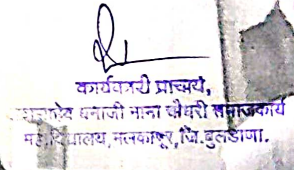 कार्यकारी प्राचार्य,
धनाजी नाना चौधरी समाजकार्य
महाविद्यालय, मलकापूर, जि. बुलडाणा.